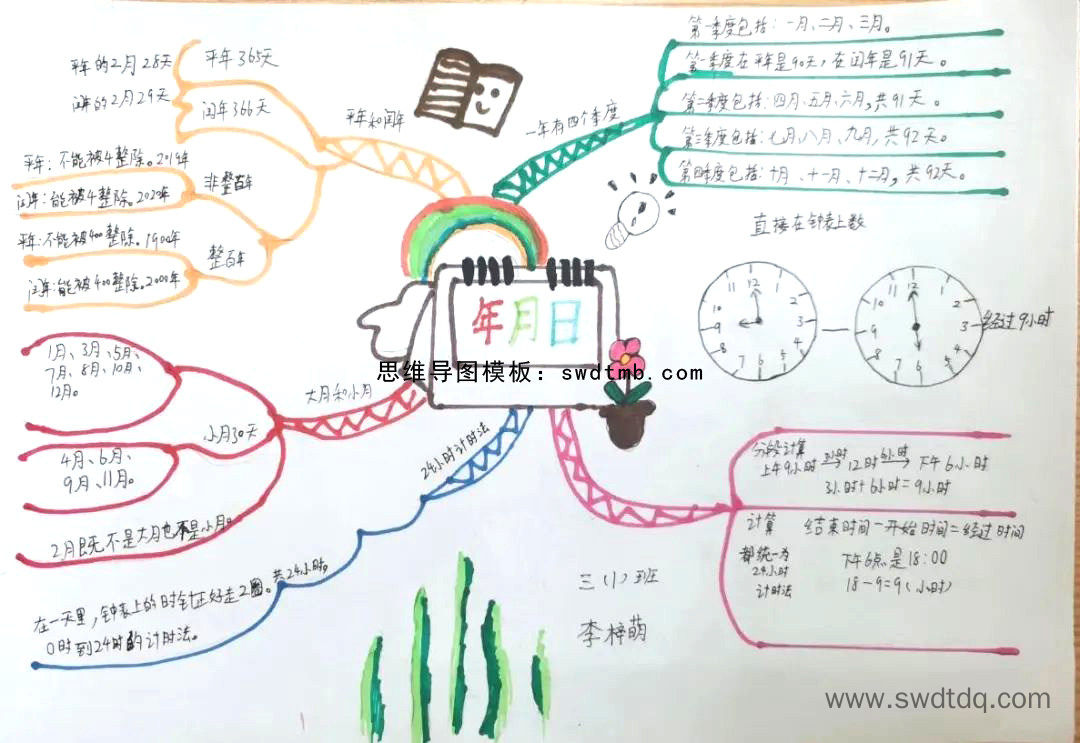 平年的2月28天
闰年的2月29天
平年365天
闰年366天
平年和闰年
平年:不能被4整除。2019年
闰年:能被4整除。2020年
非整百年
平年:不能被400整除。1900年
闰年:能被400整除。2000年
整百年
一年有四个季度
第一季度包括:一月、二月、三月。
第一季度在平年是90天,在闰年是91天。
第二季度包括:四月、五月、六月,共91天。
第三季度包括:七月、八月、九月,共92天。
第四季度包括:十月、十一月、十二月,共92天。
直接在钟表上数
12
1
2
3
4
5
6
7
8
9
10
11
12
1
2
3
4
5
6
7
8
9
10
11
经过9小时
年月日
思维导图模板:swdtmb.com
大月和小月
1月、3月、5月、
7月、8月、10月、
12月。
小月30天
4月、6月、
9月、11月。
2月既不是大月也不是小月。
24小时计时法
在一天里,钟表上的时针正好走2圈。共24小时。
0时到24时的计时法。
分段计算
上午9小时 3小时→ 12时 6小时→ 下午6小时
3小时+6小时=9小时
计算
都统一为
24小时
计时法
结束时间-开始时间=经过时间
下午6点是18:00
18-9=9(小时)
三(1)班
李梓萌
www.swdtdq.com